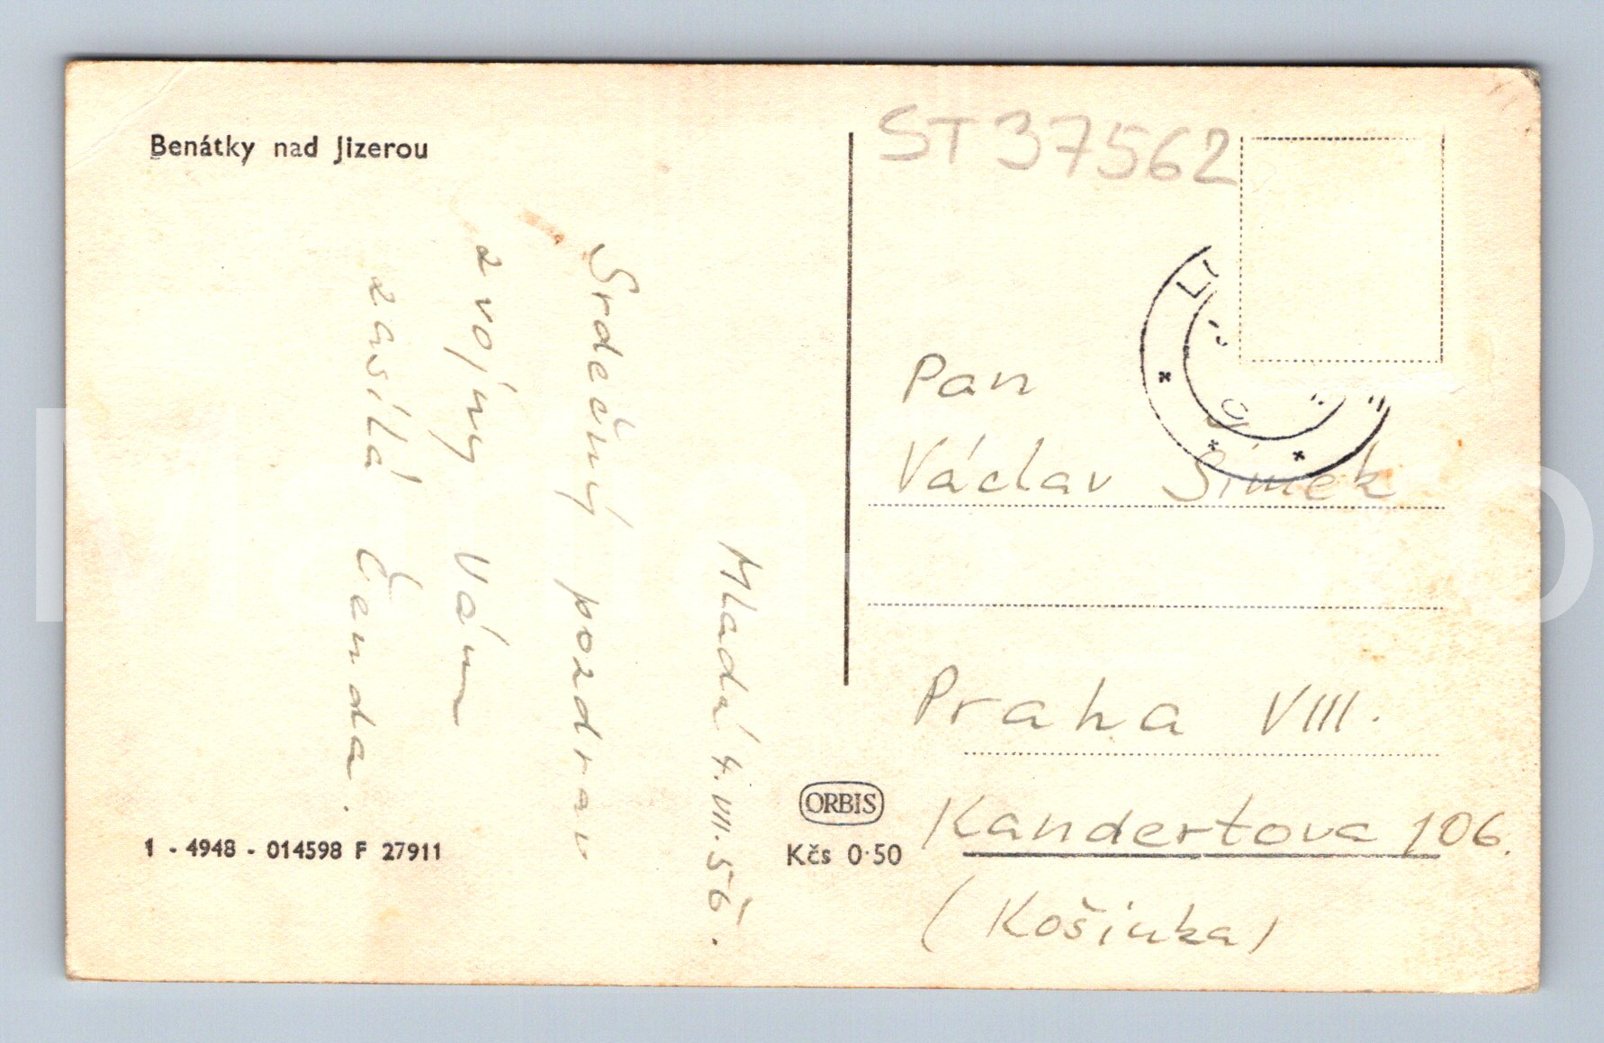 Benátky nad Jizerou
ST37562
Mladá 4. VIII. 56.
Srdečný pozdrav
z vojny Vám
zasílá Čenda.
Pan
Václav Šimek
Praha VIII.
Kandertova 106.
(Košinka)
ORBIS
Kčs 0·50
1 - 4948 - 014598 F 27911